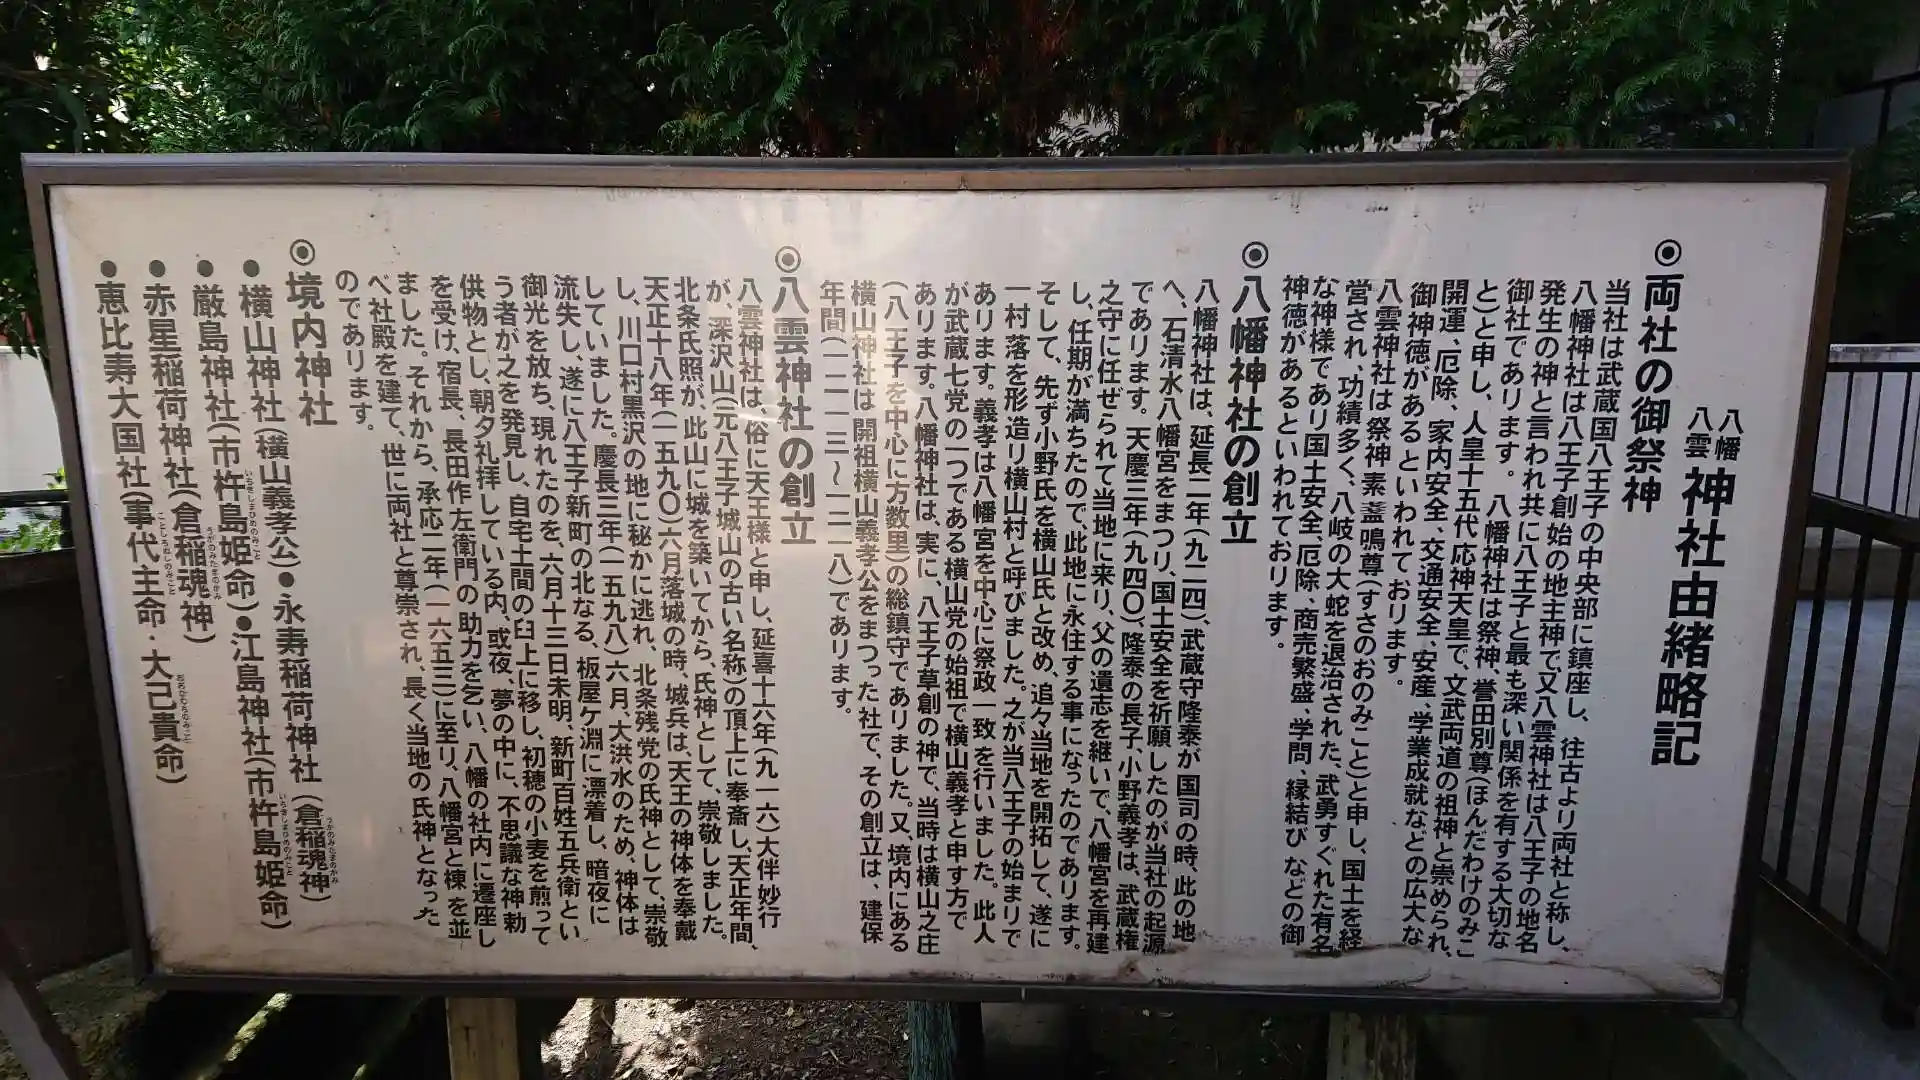 八幡
八雲
神社由緒略記
◉両社の御祭神
当社は武蔵国八王子の中央部に鎮座し、往古より両社と称し、
八幡神社は八王子創始の地主神で又八雲神社は八王子の地名
発生の神と言われ共に八王子と最も深い関係を有する大切な
御社であります。八幡神社は祭神、誉田別尊(ほんだわけのみこ
と)と申し、人皇十五代応神天皇で、文武両道の祖神と崇められ、
開運、厄除、家内安全、交通安全、安産、学業成就などの広大な
御神徳があるといわれております。
八雲神社は祭神素盞鳴尊(すさのおのみこと)と申し、国土を経
営され、功績多く、八岐の大蛇を退治された、武勇すぐれた有名
な神様であり国土安全、厄除、商売繁盛、学問、縁結びなどの御
神徳があるといわれております。
◉八幡神社の創立
八幡神社は、延長二年(九二四)、武蔵守隆泰が国司の時、此の地
へ、石清水八幡宮をまつり、国土安全を祈願したのが当社の起源
であります。天慶三年(九四〇)、隆泰の長子、小野義孝は、武蔵権
之守に任ぜられて当地に来り、父の遺志を継いで、八幡宮を再建
し、任期が満ちたので、此地に永住する事になったのであります。
そして、先ず小野氏を横山氏と改め、追々当地を開拓して、遂に
一村落を形造り横山村と呼びました。之が当八王子の始まりで
あります。義孝は八幡宮を中心に祭政一致を行いました。此人
が武蔵七党の一つである横山党の始祖で横山義孝と申す方で
あります。八幡神社は、実に、八王子草創の神で、当時は横山之庄
(八王子を中心に方数里)の総鎮守でありました。又、境内にある
横山神社は開祖横山義孝公をまつった社で、その創立は、建保
年間(一二一三〜一二一八)であります。
◉八雲神社の創立
八雲神社は、俗に天王様と申し、延喜十六年(九一六)大伴妙行
が、深沢山(元八王子城山の古い名称)の頂上に奉斎し、天正年間、
北条氏照が、此山に城を築いてから、氏神として、崇敬しました。
天正十八年(一五九〇)六月落城の時、城兵は、天王の神体を奉戴
し、川口村黒沢の地に秘かに逃れ、北条残党の氏神として、崇敬
していました。慶長三年(一五九八)六月、大洪水のため、神体は
流失し、遂に八王子新町の北なる、板屋ケ淵に漂着し、暗夜に
御光を放ち、現れたのを、六月十三日未明、新町百姓五兵衛とい
う者が之を発見し、自宅土間の臼上に移し、初穂の小麦を煎って
供物とし、朝夕礼拝している内、或夜、夢の中に、不思議な神勅
を受け、宿長、長田作左衛門の助力を乞い、八幡の社内に遷座し
ました。それから、承応二年(一六五三)に至り、八幡宮と棟を並
べ社殿を建て、世に両社と尊崇され、長く当地の氏神となった
のであります。
◉境内神社
●横山神社(横山義孝公)●永寿稲荷神社(倉稲魂神)
うかのみたまのかみ
●厳島神社(市杵島姫命)●江島神社(市杵島姫命)
いちきしまひめのみこと
いちきしまひめのみこと
●赤星稲荷神社(倉稲魂神)
うがのみたまのかみ
●恵比寿大国社(事代主命・大己貴命)
ことしろぬしのみこと
おおなむちのみこと